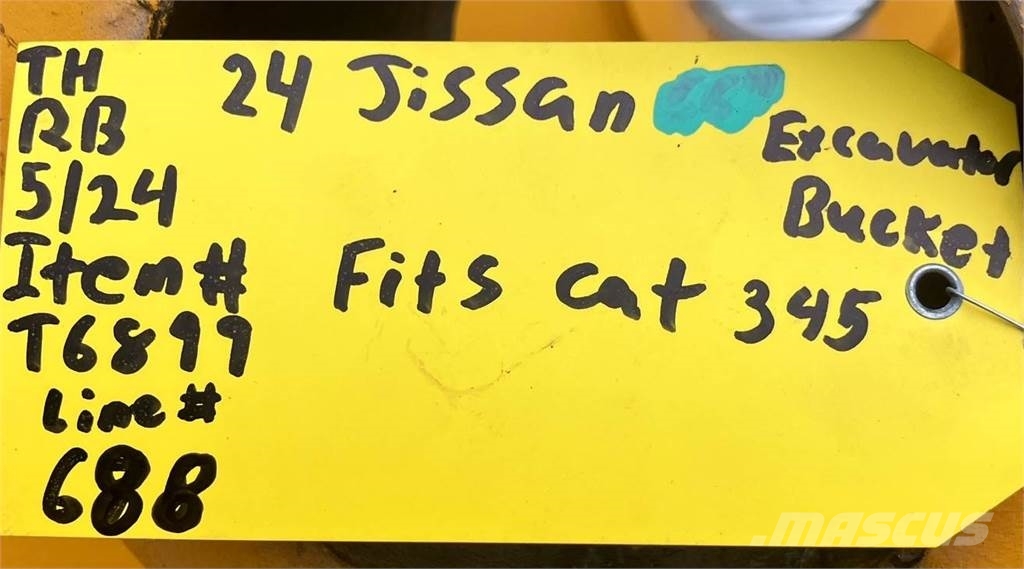 TH
RB
5/24
Item#
T6899
Line#
688
24 Jissan
Excavator
Bucket
Fits Cat 345
MASCUS